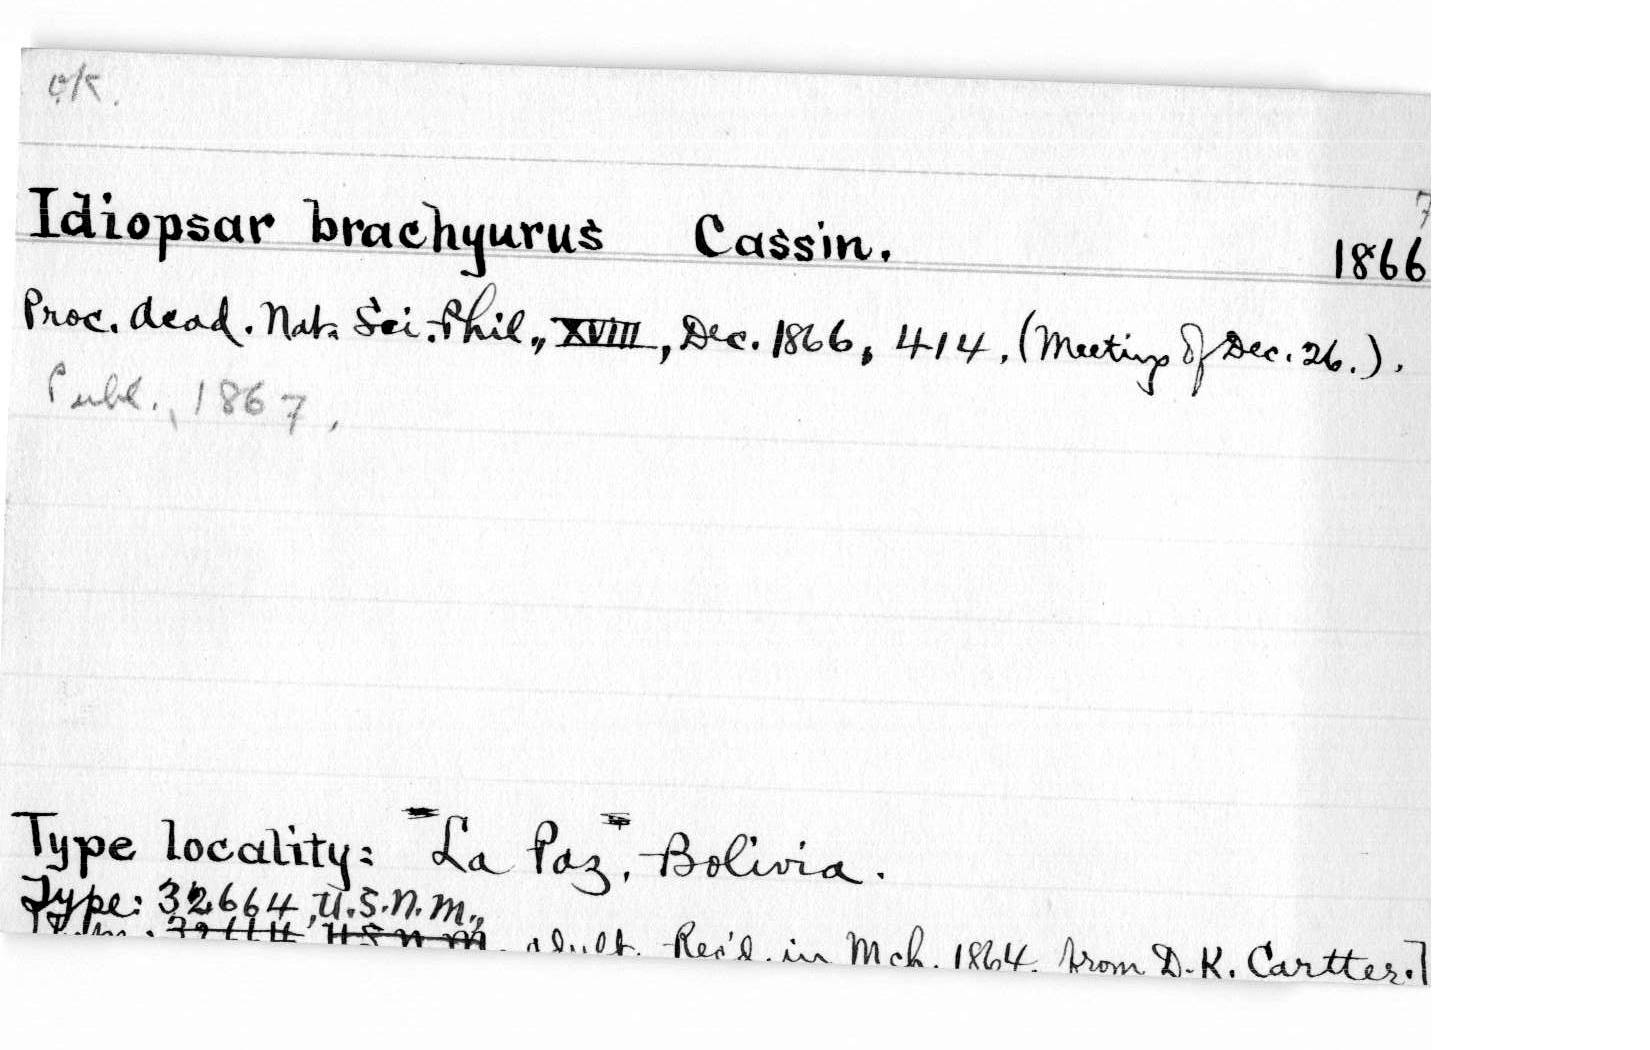 o/k.
7
Idiopsar brachyurus Cassin. 1866
Proc. Acad. Nat. Sci. Phil., XVIII, Dec. 1866, 414, (Meeting of Dec. 26.).
Publ., 1867,
Type locality: La Paz, Bolivia.
Type: 32664, U.S.N.M.,
32664 U.S.N.M. adult. Rec'd. in Mch. 1864. from D.K. Cartter.]